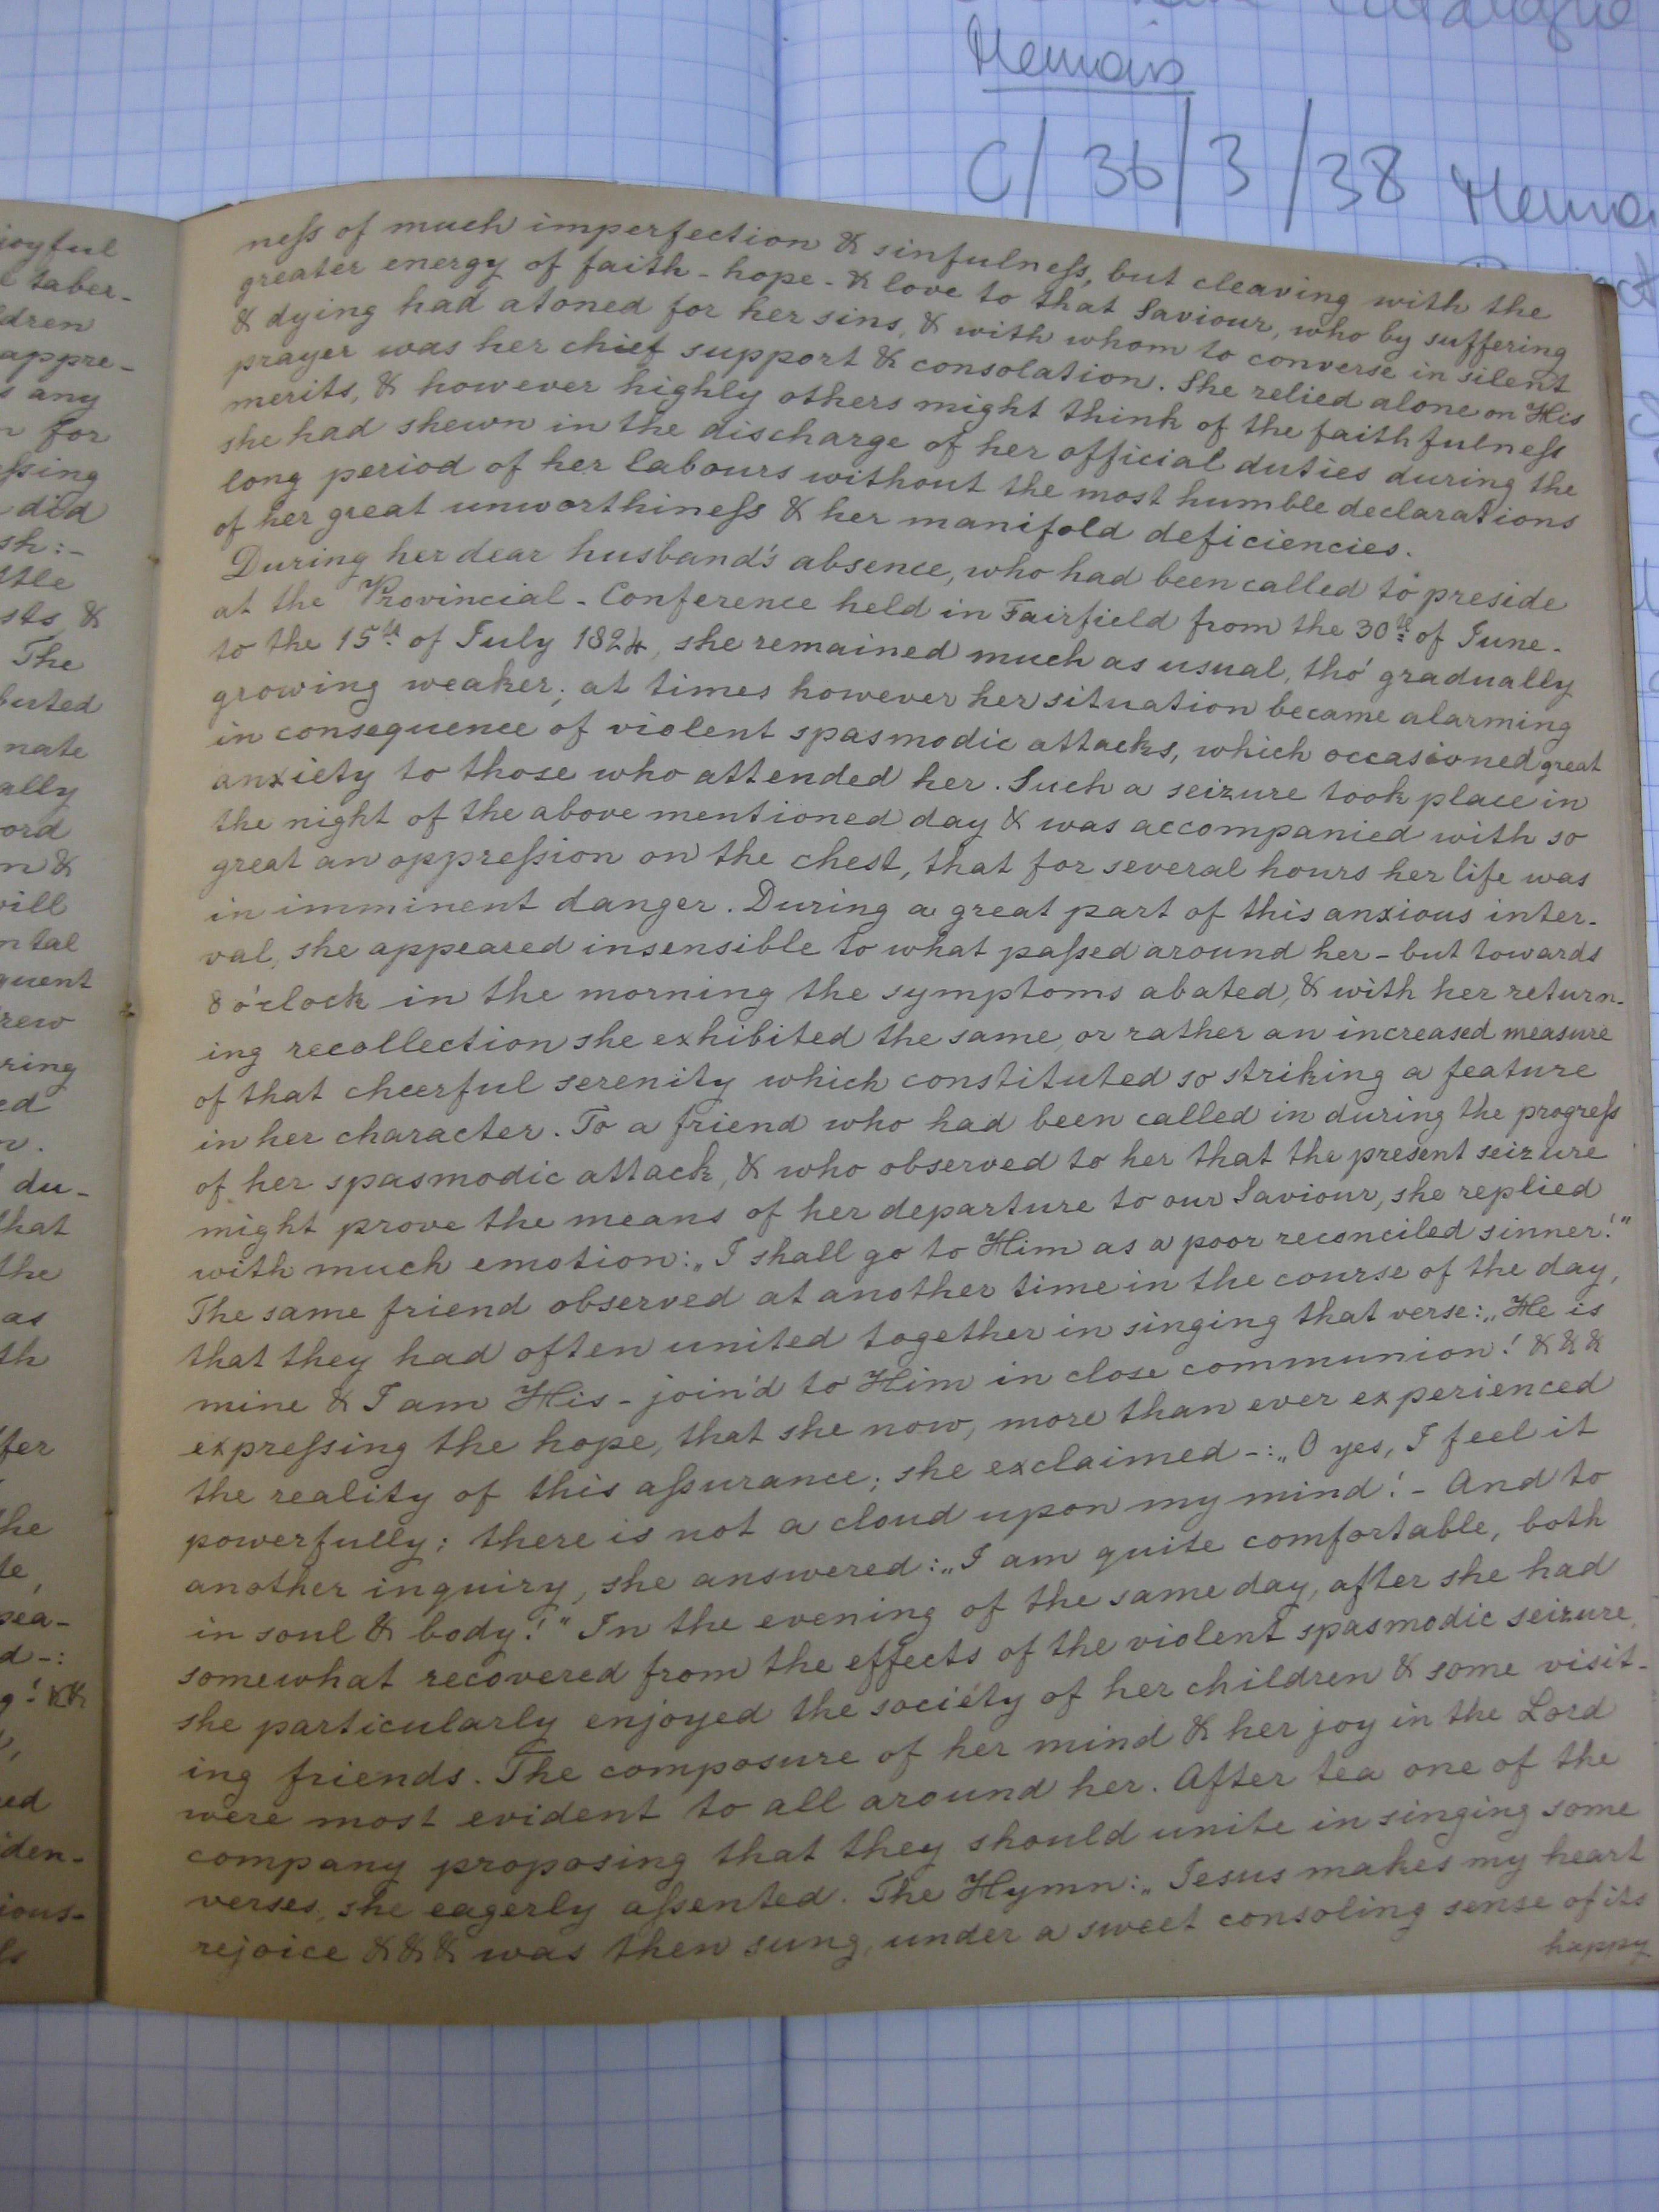 Memoirs
C/36/3/38 Memo
joyful
taber-
dren
appre-
s any
for
ssing
did
sh:-
ttle
sts &
The
buted
nate
ally
ord
m &
will
ntal
quent
rew
ring
ed
du-
that
the
as
th
ffer
the
te,
sea-
d-:
g! &&
ed
iden-
ious-
neſs of much imperfection & sinfulneſs, but cleaving with the
greater energy of faith - hope - & love to that Saviour, who by suffering
& dying had atoned for her sins, & with whom to converse in silent
prayer was her chief support & consolation. She relied alone on His
merits, & however highly others might think of the faithfulneſs
she had shewn in the discharge of her official duties during the
long period of her labours without the most humble declarations
of her great unworthineſs & her manifold deficiencies.
During her dear husband's absence, who had been called to preside
at the Provincial - Conference held in Fairfield from the 30th of June -
to the 15th of July 1824, she remained much as usual, tho' gradually
growing weaker; at times however her situation became alarming
in consequence of violent spasmodic attacks, which occasioned great
anxiety to those who attended her. Such a seizure took place in
the night of the above mentioned day & was accompanied with so
great an oppreſsion on the chest, that for several hours her life was
in imminent danger. During a great part of this anxious inter-
val, she appeared insensible to what paſsed around her - but towards
8 o'clock in the morning the symptoms abated, & with her return-
ing recollection she exhibited the same, or rather an increased measure
of that cheerful serenity which constituted so striking a feature
in her character. To a friend who had been called in during the progreſs
of her spasmodic attack, & who observed to her that the present seizure
might prove the means of her departure to our Saviour, she replied
with much emotion: „I shall go to Him as a poor reconciled sinner!"
The same friend observed at another time in the course of the day,
that they had often united together in singing that verse: „He is
mine & I am His - join'd to Him in close communion! & & &
expreſsing the hope, that she now, more than ever experienced
the reality of this aſsurance; she exclaimed -: „O yes, I feel it
powerfully; there is not a cloud upon my mind! - And to
another inquiry, she answered: „I am quite comfortable, both
in soul & body!" In the evening of the same day, after she had
somewhat recovered from the effects of the violent spasmodic seizure,
she particularly enjoyed the society of her children & some visit-
ing friends. The composure of her mind & her joy in the Lord
were most evident to all around her. After tea one of the
company proposing that they should unite in singing some
verses, she eagerly aſsented. The Hymn: „Jesus makes my heart
rejoice & & & was then sung, under a sweet consoling sense of its
happy